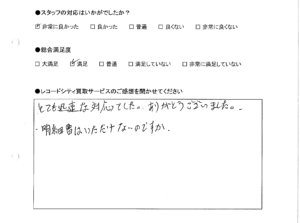 ●スタッフの対応はいかがでしたか？
☑非常に良かった □良かった □普通 □良くない □非常に良くない
●総合満足度
□大満足 ☑満足 □普通 □満足していない □非常に満足していない
●レコードシティ買取サービスのご感想を聞かせてください
とても迅速な対応でした。ありがとうございました。
・明細書はいただけないのですか。